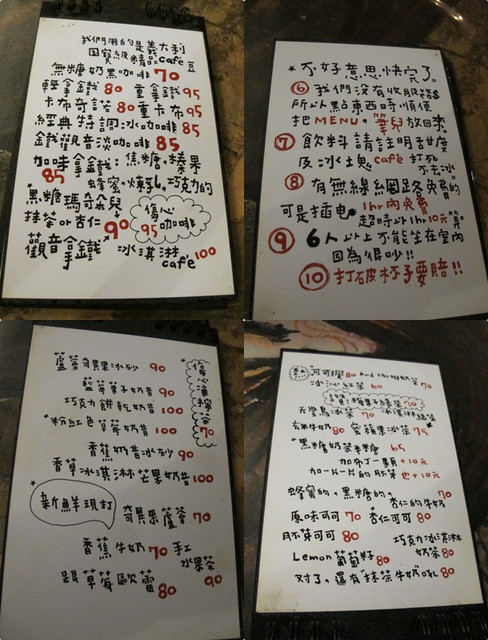 我們用的是義大利
國寶級精品café豆
無糖奶黑咖啡 70
輕拿鐵 80 重拿鐵 95
卡布奇諾 80 重卡布 95
經典特調冰咖啡 85
鐵觀音淡咖啡 85
加味拿鐵:焦糖、榛果
85 蜂蜜、煉乳、巧克力的
黑糖瑪朵兒
抹茶or杏仁 90
傷心咖啡 95
觀音拿鐵
冰淇淋café 100
不好意思快完了。
⑥ 我們沒有收服務$
所以點東西時順便
把MENU。筆兒放回來。
⑦ 飲料請註明甜度
及冰塊 café打死不去冰。
⑧ 有無線網路免費的
可是插電 1hr內免費
超時以1hr10元"算"
⑨ 6人以上不能坐在室內
因為很吵!!
⑩ 打破杯子要賠!!
蘆薈奇異果冰砂 90
藍莓果子奶昔 90
巧克力餅乾奶昔 100
粉紅色草莓奶昔 100
香蕉奶昔冰砂 90
香草冰淇淋芒果奶昔 100
傷心凍檸茶 70
新鮮現打
奇異果蘆薈 70
香蕉牛奶 70
手工水果茶 90
跟草莓歐蕾 80
冰沁紅茶 60
天堂鳥冰茶 70
玄米牛奶 80 蜜蘋果冰茶 75
黑糖奶茶半糖 65
加布丁一顆 +10元
加一片一片的胚芽也+10元
蜂蜜的、黑糖的、杏仁的牛奶 70
原味可可 70 杏仁可可 80
胚芽可可 80
巧克力冰淇淋奶茶 80
Lemon葡萄籽 80
對了。還有"抹茶牛奶"吼 80